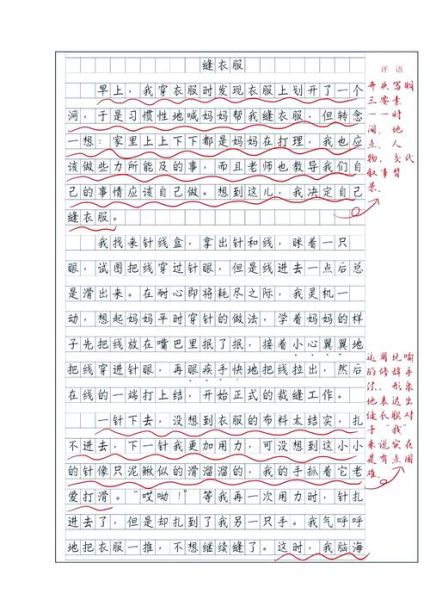 缝衣服
早上，我穿衣服时发现衣服上划开了一个
洞，于是习惯性地喊妈妈帮我缝衣服，但转念
一想：家里上上下下都是妈妈在打理，我也应
该做些力所能及的事，而且老师也教导我们自
己的事情应该自己做。想到这儿，我决定自己
缝衣服。
我找来针线盒，拿出针和线，眯着一只
眼，试图把线穿过针眼，但是线进去一点后总
是滑出来。在耐心即将耗尽之际，我灵机一
动，想起妈妈平时穿针的做法，学着妈妈的样
子先把线放在嘴巴里抿了抿，接着小心翼翼地
把线穿进针眼，再眼疾手快地把线拉出，然后
在线的一端打上结，开始正式的裁缝工作。
一针下去，没想到衣服的布料太结实，扎
不进去，下一针我更加用力，可没想到这小小
的针像只泥鳅似的滑溜溜的，我的手抓着它老
爱打滑。“哎呦！”等我再一次用力时，针扎
进去了，但是却扎到了我另一只手。我气呼呼
地把衣服一推，不想继续缝了。这时，我脑海
评语
开头写明
三要素
——时
间、地
点、人
物，交代
叙事背
景。
运用比喻
的修辞手
法，形象
地表达出
缝衣服对
于“我”
来说实在
是有点困
难。